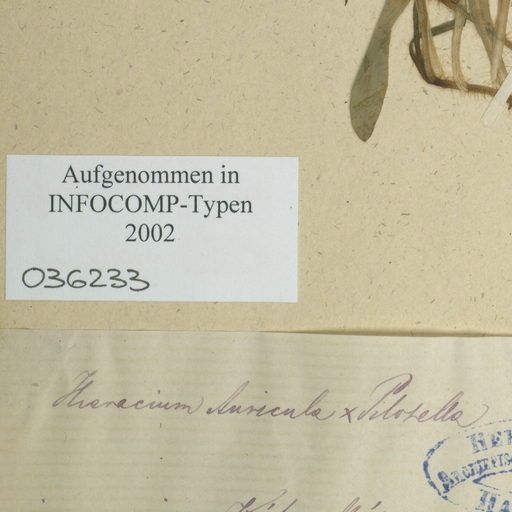 Aufgenommen in
INFOCOMP-Typen
2002
036233
Hieracium Auricula x Pilosella
HER